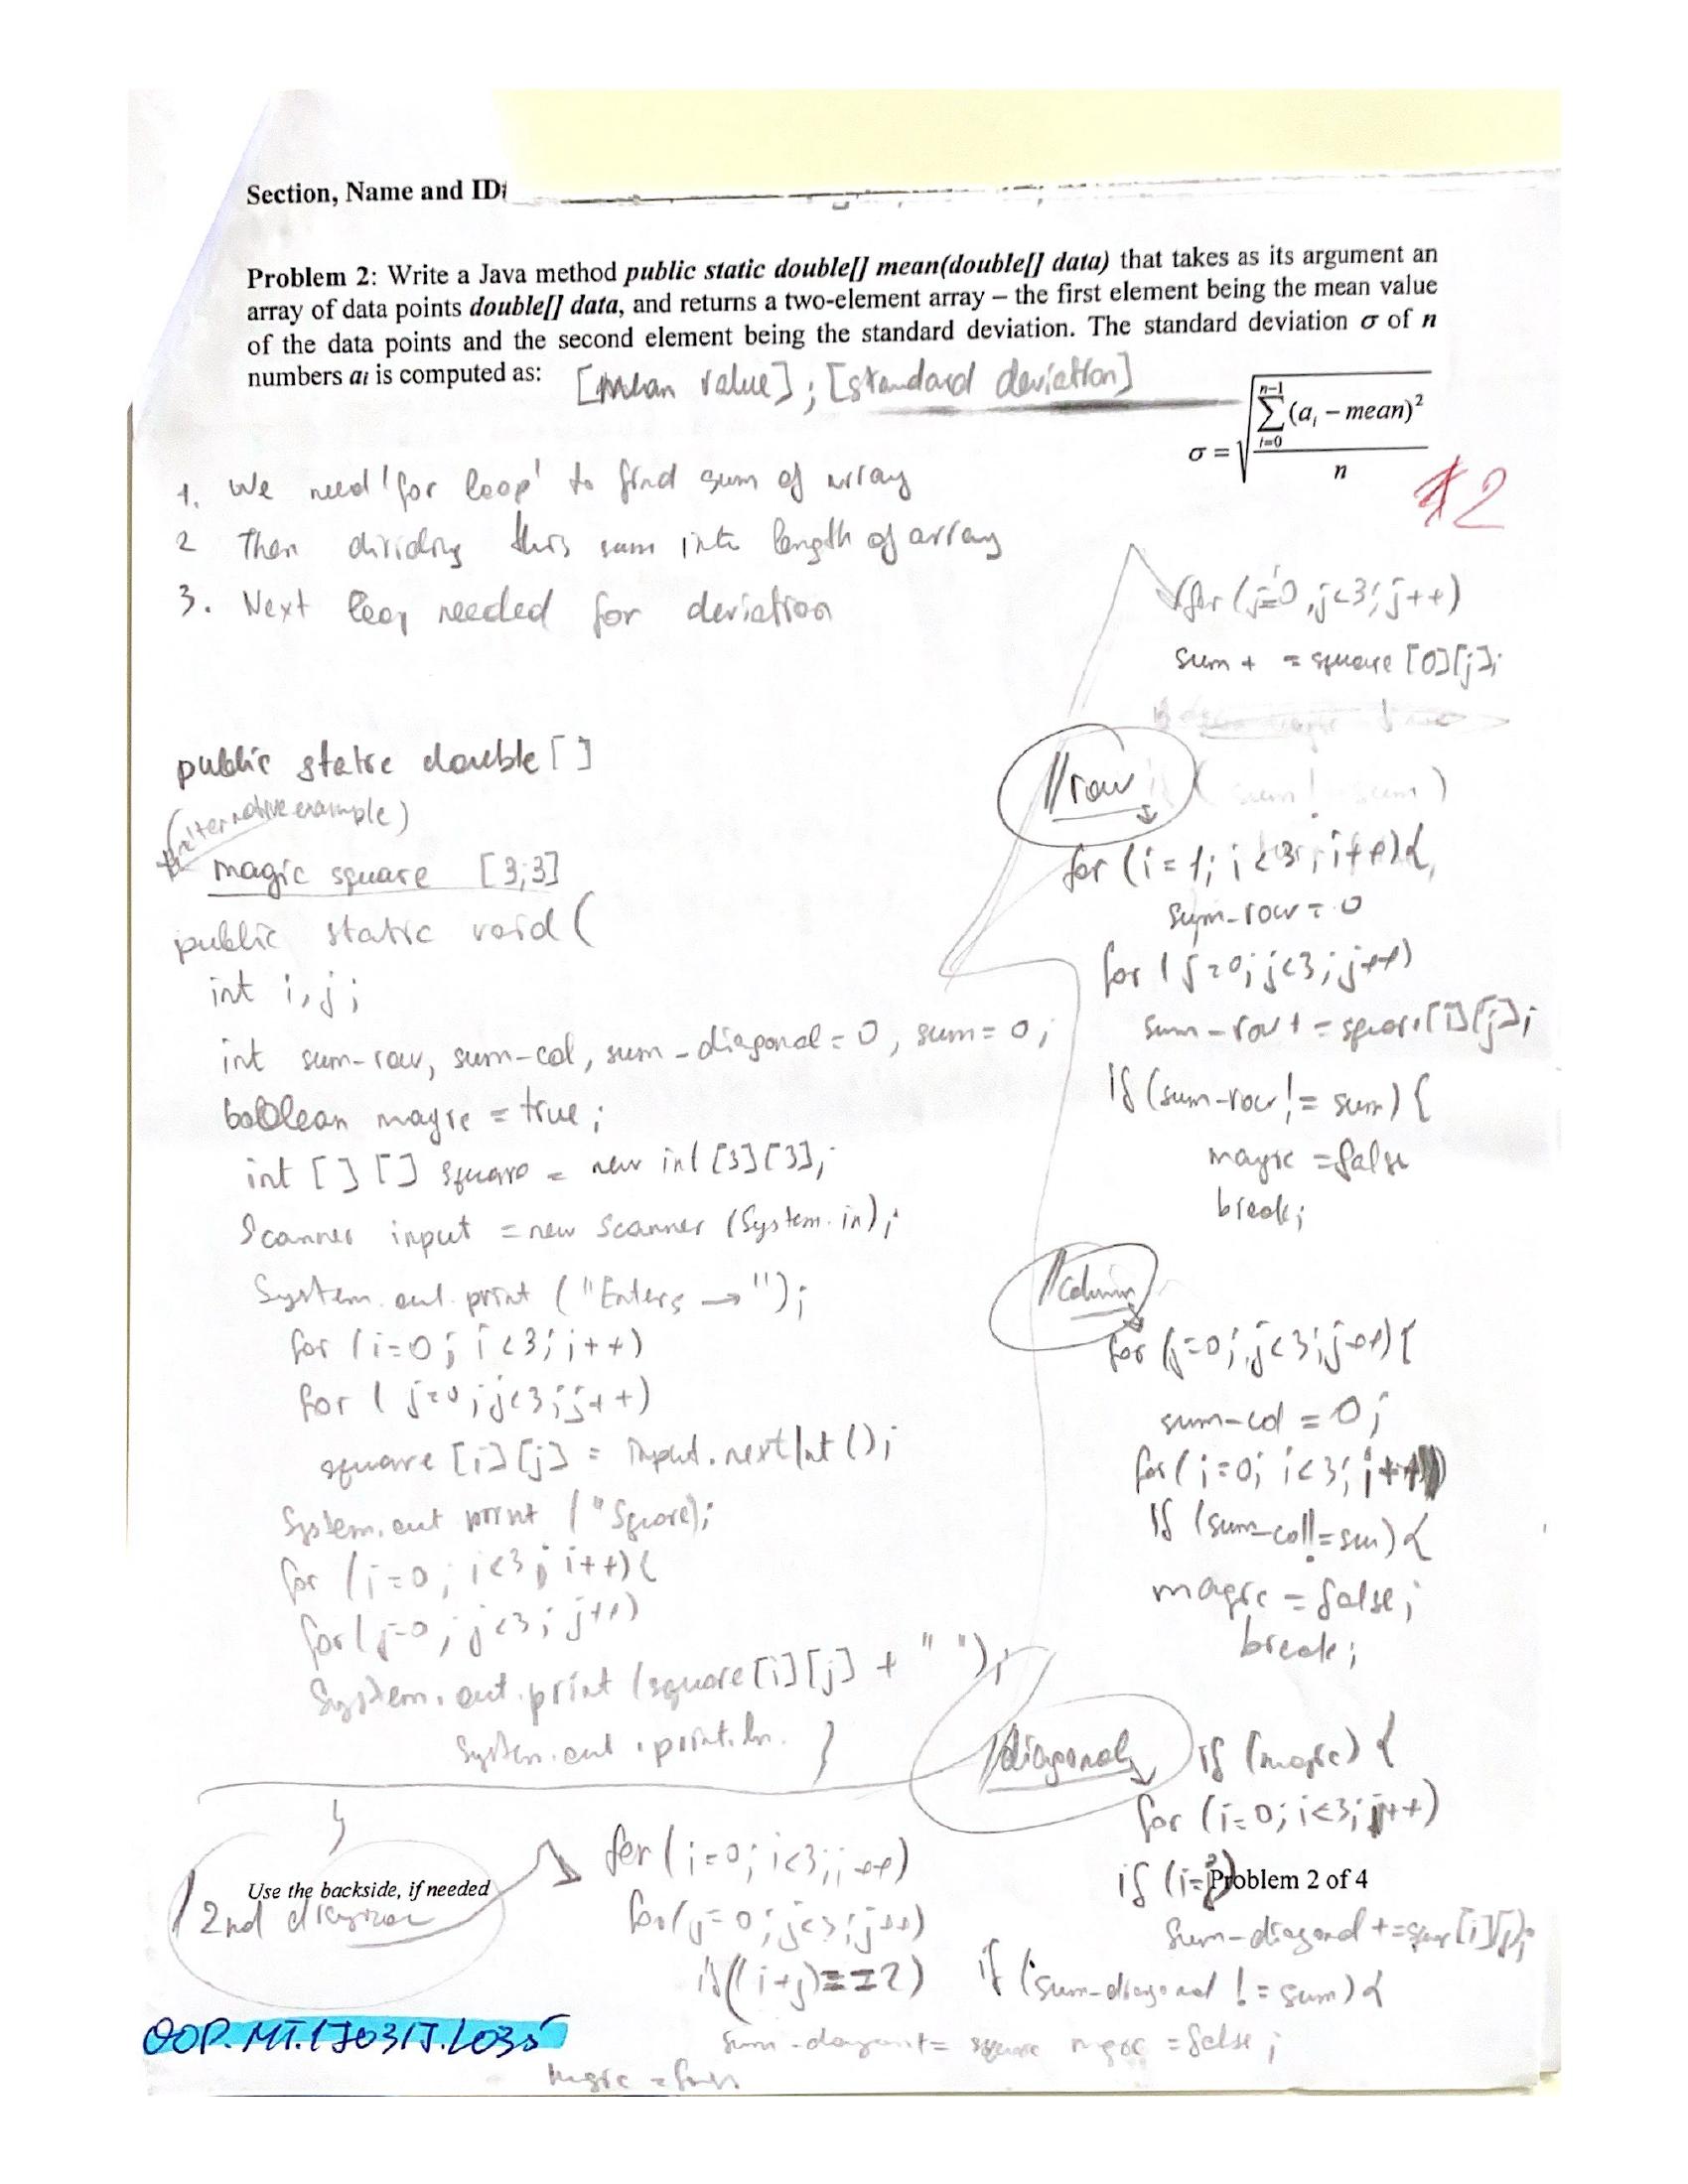 Section, Name and ID:
Problem 2: Write a Java method public static double[] mean(double[] data) that takes as its argument an
array of data points double[] data, and returns a two-element array – the first element being the mean value
of the data points and the second element being the standard deviation. The standard deviation σ of n
numbers ai is computed as:
[mean value]; [standard deviation]
σ = √(∑(ai – mean)² / n)
n–1
i=0
2
1. We need 'for loop' to find sum of array
2 Then dividing this sum into length of array
3. Next loop needed for deviation
public static double []
(alternative example)
magic square [3;3]
public static void (
int i, j;
int sum-row, sum-col, sum-diagonal = 0, sum = 0;
boolean magic = true;
int [ ] [ ] square = new int [3][3];
Scanner input = new Scanner (System.in);
System.out.print ("Enters → ");
for (i=0; i<3; i++)
for ( j=0; j<3; j++)
square [i][j] = input.nextInt ();
System.out print ("Square);
for (i=0; i<3; i++) {
for (j=0; j<3; j++)
System.out.print (square[i][j] + " ");
System.out.println. }
for (j=0, j<3; j++)
sum + = square [0][j];
//row
for (i = 1; i<3; i++) {
sum-row = 0
for ( j=0; j<3; j++)
sum-row + = square[i][j];
if (sum-row != sum) {
magic = false
break;
//column
for (j=0; j<3; j++) {
sum-col = 0;
for (i=0; i<3; i++)
if (sum-col != sum) {
magic = false;
break;
//diagonal
if (magic) {
for (i=0; i<3; j++)
if (i=j)
sum-diagonal += square[i][j];
if (sum-diagonal != sum) {
magic = false;
/2nd diagonal
for (i=0; i<3; i++)
for (j=0; j<3; j++)
if ((i+j)==2)
sum-diagonal += square
magic = false
Use the backside, if needed
Problem 2 of 4
OOP.MT.170317.L035